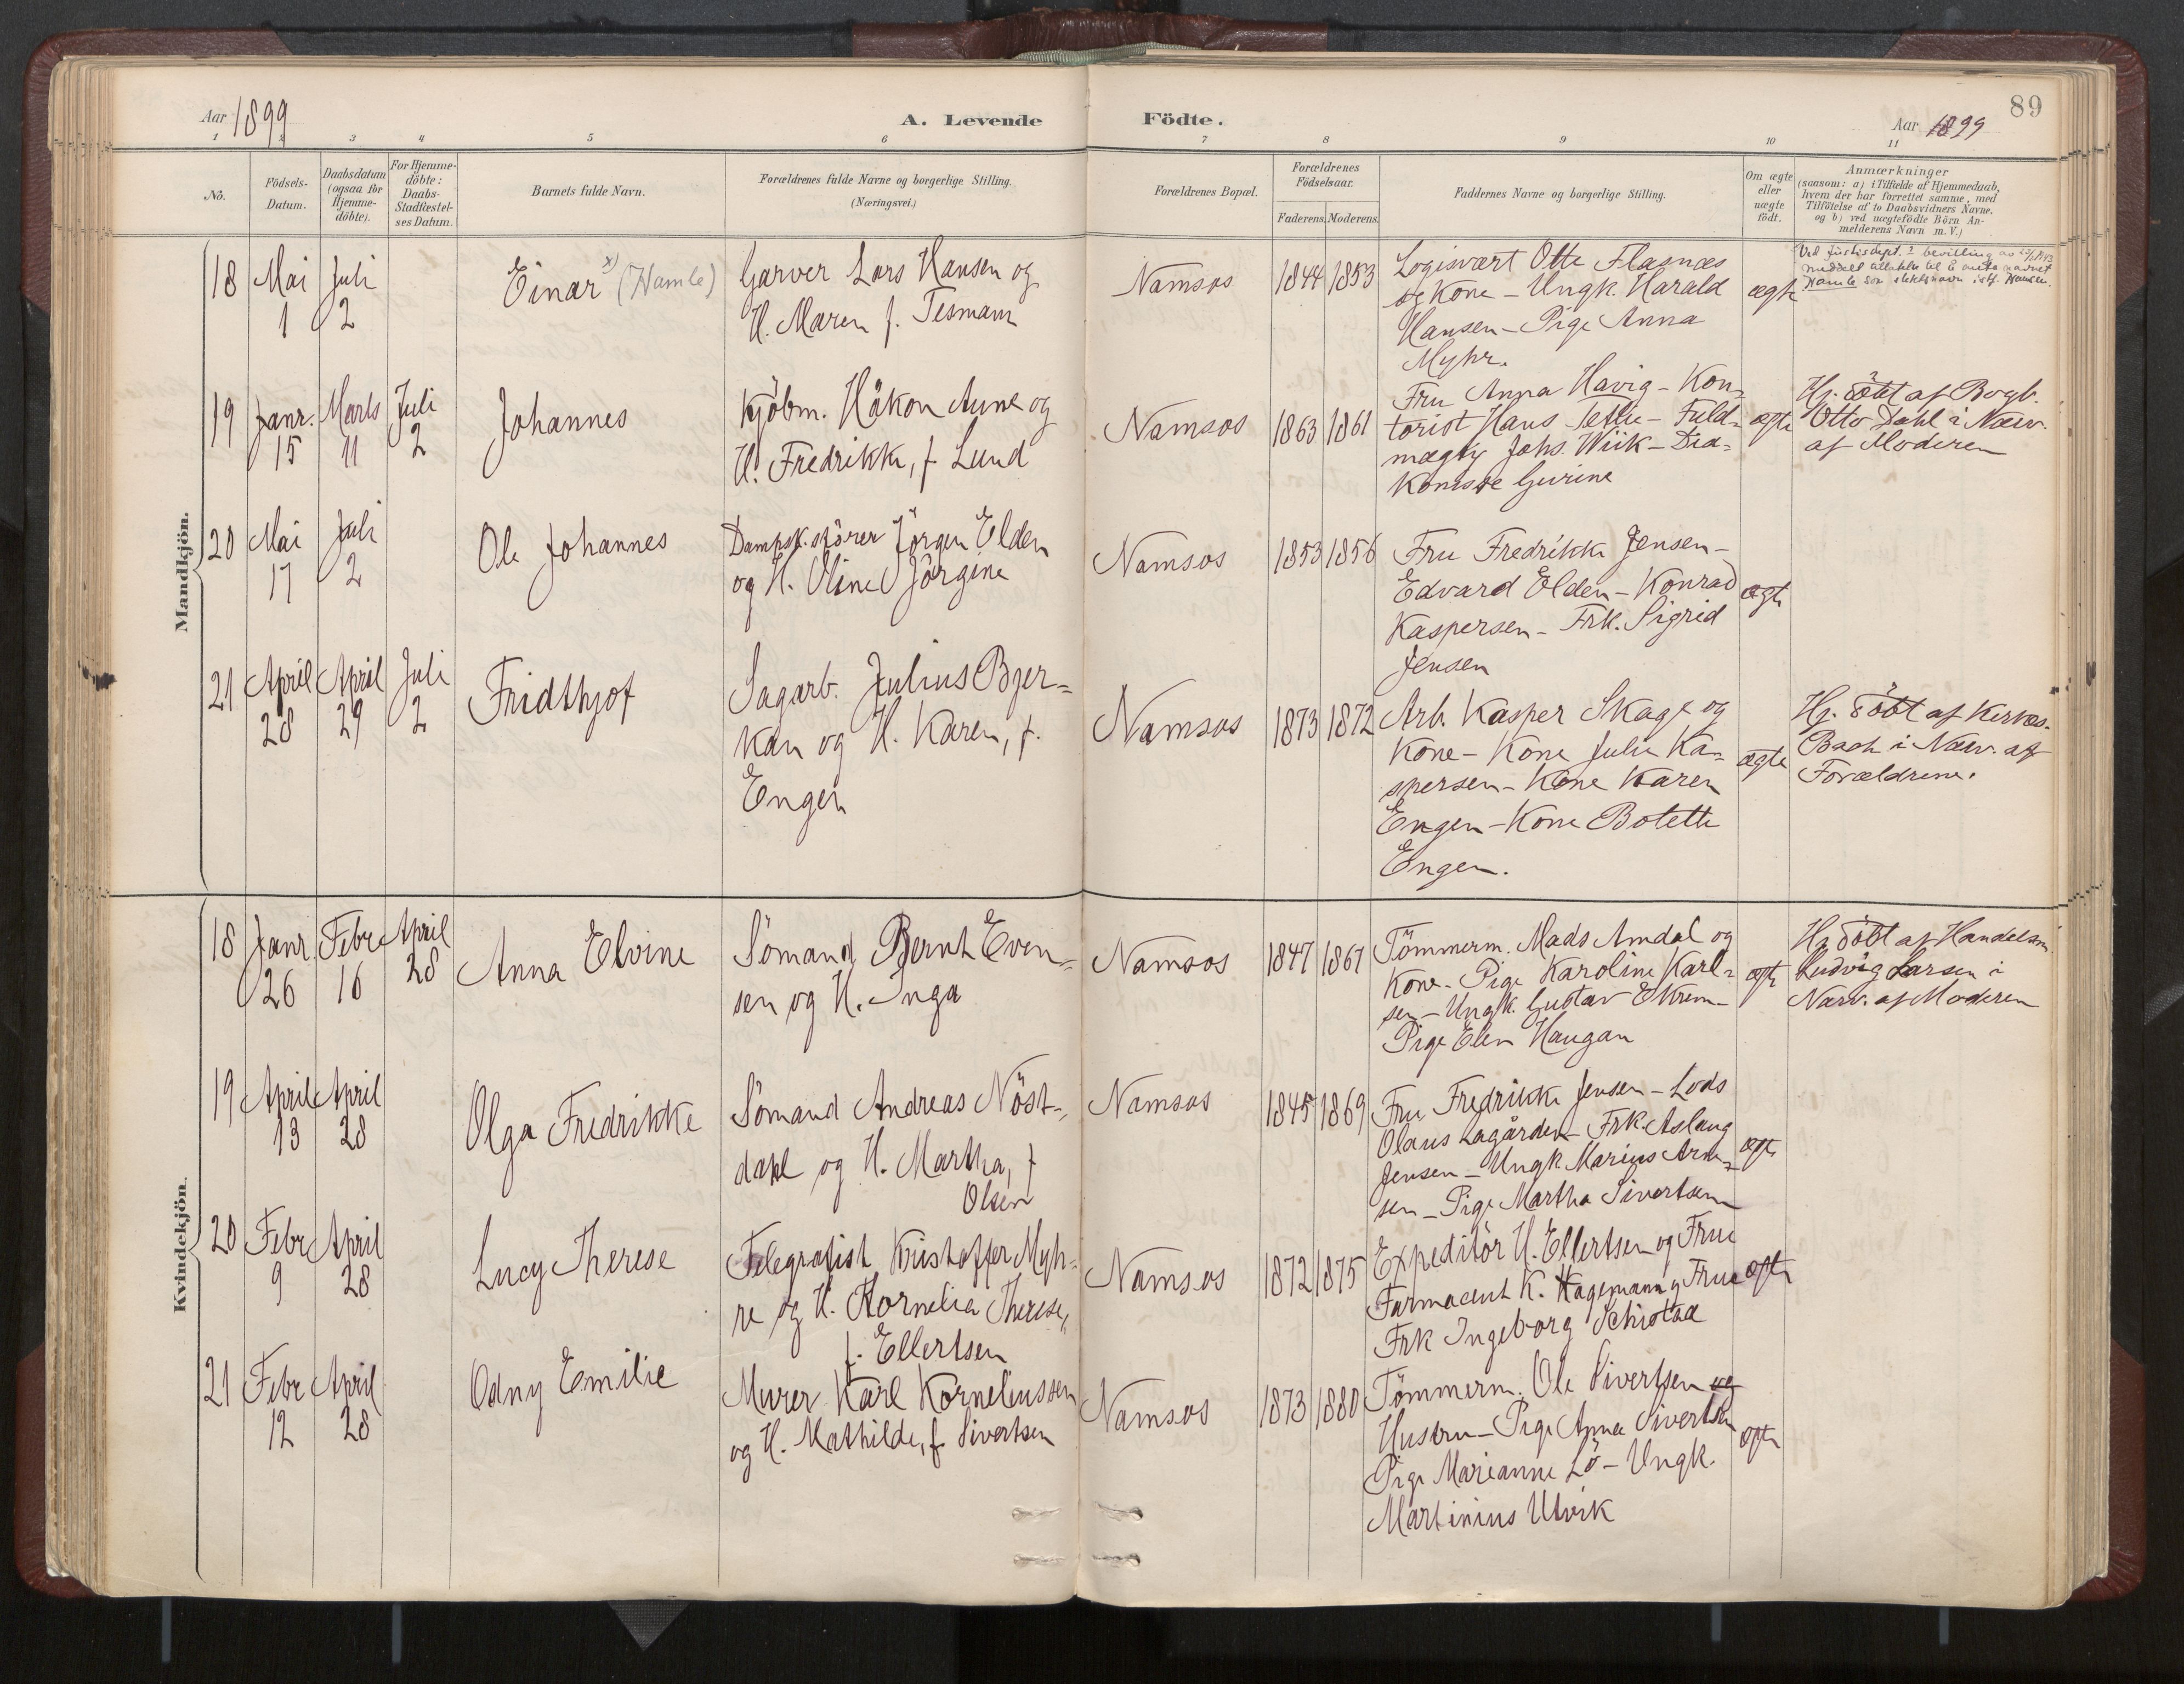 Aar 1899
A. Levende Födte.
Aar 1899
89
1 2 3 4 5 6 7 8 9 10 11
No.
Födsels-
Datum.
Daabsdatum
(ogsaa for
Hjemme-
döbte).
For Hjemme-
döbte:
Daabs-
Stadfæstel-
ses Datum.
Barnets fulde Navn.
Forældrenes fulde Navne og borgerlige Stilling.
(Næringsvei.)
Forældrenes Bopæl.
Forældrenes
Födselsaar.
Faderens. Moderens.
Faddernes Navne og borgerlige Stilling.
Om ægte
eller
uægte
födt.
Anmærkninger
(saasom: a) i Tilfælde af Hjemmedaab,
hvem der har forrettet samme, med
Tilföielse af to Daabsvidners Navne,
og b) ved uægtefödte Börn An-
melderens Navn m. V.)
Mandkjön.
18 Mai
1
Juli
2
Einar x) (Hamle)
Garver Lars Hansen og
H. Maren f. Tesmann
Namsos
1844 1853
Logisvært Otto Flasnæs
og Kone - Ungk. Harald
Hansen - Pige Anna
Myhr.
ægte
Ved justisdept.s bevilling av
meddelt tillatelse til å anta navnet
Hamle som slektsnavn istf. Hansen.
19 Janr.
15
Marts
11
Juli
2
Johannes
Kjöbm. Håkon Aune og
H. Fredrikke, f. Lund
Namsos
1863 1861
Fru Anna Havig - Kon-
torist Hans - Fuld-
mægtig Johs. Wiik - Dia-
konisse Gurine
ægte
Hj. döbt af Bogh.
Otto Dahl i Nærv.
af Moderen
20 Mai
17
Juli
2
Ole Johannes
Dampsk.förer Jörgen Elden
og H. Oline Jörgine
Namsos
1853 1856
Fru Fredrikke Jensen -
Edvard Elden - Konrad
Kaspersen - Frk. Sigrid
Jensen
ægte
21 April
28
April
29
Juli
2
Fridthjof
Sagarb. Julius Bjer-
kan og H. Karen, f.
Engen
Namsos
1873 1872
Arb. Kasper Skage og
Kone - Kone Julie Ka-
spersen - Kone Karen
Engen - Kone Botette
Engen.
ægte
Hj. döbt af
Bach i Nærv. af
Forældrene.
Kvindekjön.
18 Janr
26
Febr
16
April
28
Anna Elvine
Sömand Bernt Even-
sen og H. Inga
Namsos
1847 1867
Tömmerm. Mads Amdal og
Kone - Pige Karoline Karl-
sen - Ungk. Gustav Ekrem -
Pige Elen Haugan
ægte
Hj. döbt af Handelsm.
Ludvig Larsen i
Nærv. af Moderen
19 April
13
April
28
Olga Fredrikke
Sömand Andreas Nöst-
dahl og H. Martha, f
Olsen
Namsos
1845 1869
Fru Fredrikke Jensen - Lods
Olaus Lagården - Frk. Aslaug
Jensen - Ungk Marius Arne-
sen - Pige Martha Sivertsen
ægte
20 Febr
9
April
28
Lucy Therese
Telegrafist Kristoffer Myh-
re og H. Kornelia Therese,
f. Ellertsen
Namsos
1872 1875
Expeditör H. Ellertsen og Frue
Farmaceut K. Hagemann og Frue
Frk Ingeborg Schiötad
ægte
21 Febr
12
April
28
Odny Emilie
Murer Karl Korneliussen
og H. Mathilde, f. Sivertsen
Namsos
1873 1880
Tömmerm. Ole Sivertsen og
Hustru - Pige Anna Sivertsen
Pige Marianne Lö - Ungk.
Martinius Utvik
ægte